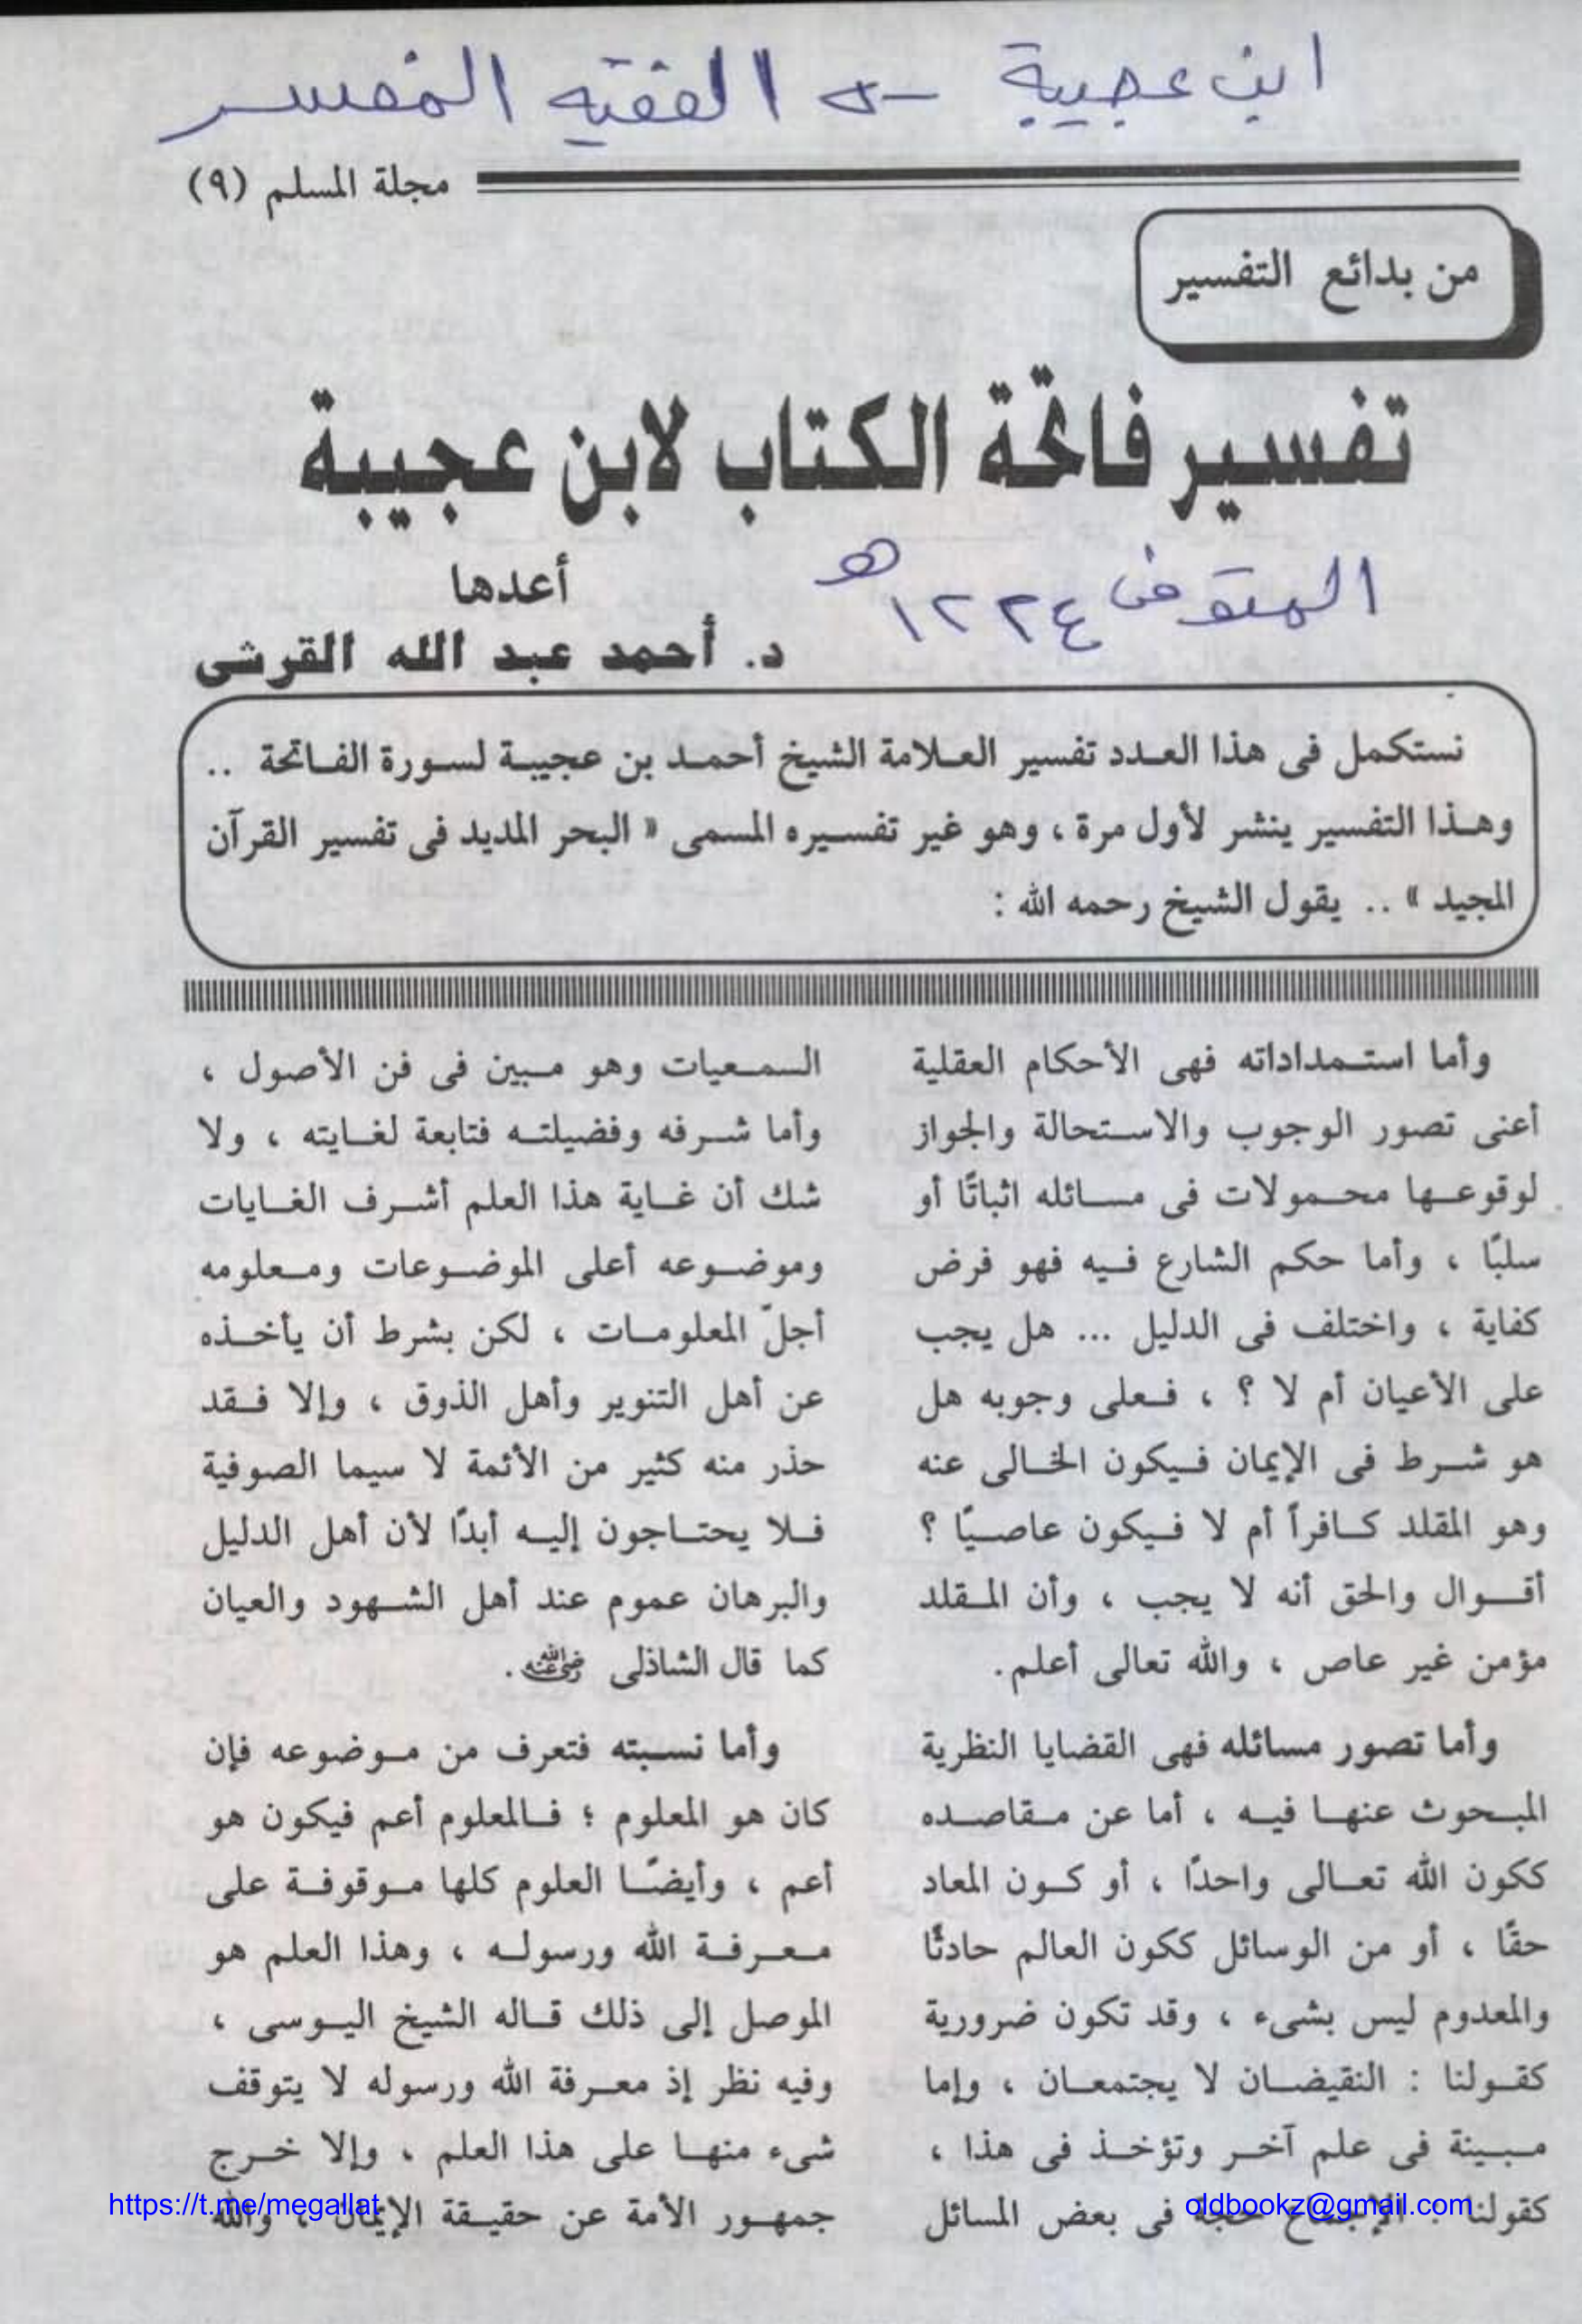 ابن عجيبة --> الفقيه المفسر
مجلة المسلم (٩)
من بدائع التفسير
تفسير فاتحة الكتاب لابن عجيبة
المتوفى ١٢٢٤ هـ
أعدها
د. أحمد عبد الله القرشى
نستكمل فى هذا العدد تفسير العلامة الشيخ أحمد بن عجيبة لسورة الفاتحة ..
وهذا التفسير ينشر لأول مرة ، وهو غير تفسيره المسمى « البحر المديد فى تفسير القرآن
المجيد » .. يقول الشيخ رحمه الله :
وأما استمداداته فهى الأحكام العقلية
أعنى تصور الوجوب والاستحالة والجواز
لوقوعها محمولات فى مسائله اثباتًا أو
سلبًا ، وأما حكم الشارع فيه فهو فرض
كفاية ، واختلف فى الدليل ... هل يجب
على الأعيان أم لا ؟ ، فعلى وجوبه هل
هو شرط فى الإيمان فيكون الخالى عنه
وهو المقلد كافراً أم لا فيكون عاصيًا ؟
أقوال والحق أنه لا يجب ، وأن المقلد
مؤمن غير عاص ، والله تعالى أعلم.
وأما تصور مسائله فهى القضايا النظرية
المبحوث عنها فيه ، أما عن مقاصده
ككون الله تعالى واحدًا ، أو كون المعاد
حقًا ، أو من الوسائل ككون العالم حادثًا
والمعدوم ليس بشىء ، وقد تكون ضرورية
كقولنا : النقيضان لا يجتمعان ، وإما
مبينة فى علم آخر وتؤخذ فى هذا ،
كقولنا : الإجماع حجة فى بعض المسائل
السمعيات وهو مبين فى فن الأصول ،
وأما شرفه وفضيلته فتابعة لغايته ، ولا
شك أن غاية هذا العلم أشرف الغايات
وموضوعه أعلى الموضوعات ومعلومه
أجلّ المعلومات ، لكن بشرط أن يأخذه
عن أهل التنوير وأهل الذوق ، وإلا فقد
حذر منه كثير من الأئمة لا سيما الصوفية
فلا يحتاجون إليه أبدًا لأن أهل الدليل
والبرهان عموم عند أهل الشهود والعيان
كما قال الشاذلى رضي الله عنه .
وأما نسبته فتعرف من موضوعه فإن
كان هو المعلوم ؛ فالمعلوم أعم فيكون هو
أعم ، وأيضًا العلوم كلها موقوفة على
معرفة الله ورسوله ، وهذا العلم هو
الموصل إلى ذلك قاله الشيخ اليوسى ،
وفيه نظر إذ معرفة الله ورسوله لا يتوقف
شىء منها على هذا العلم ، وإلا خرج
جمهور الأمة عن حقيقة الإيمان ، والله
https://t.me/megallat
oldbookz@gmail.com